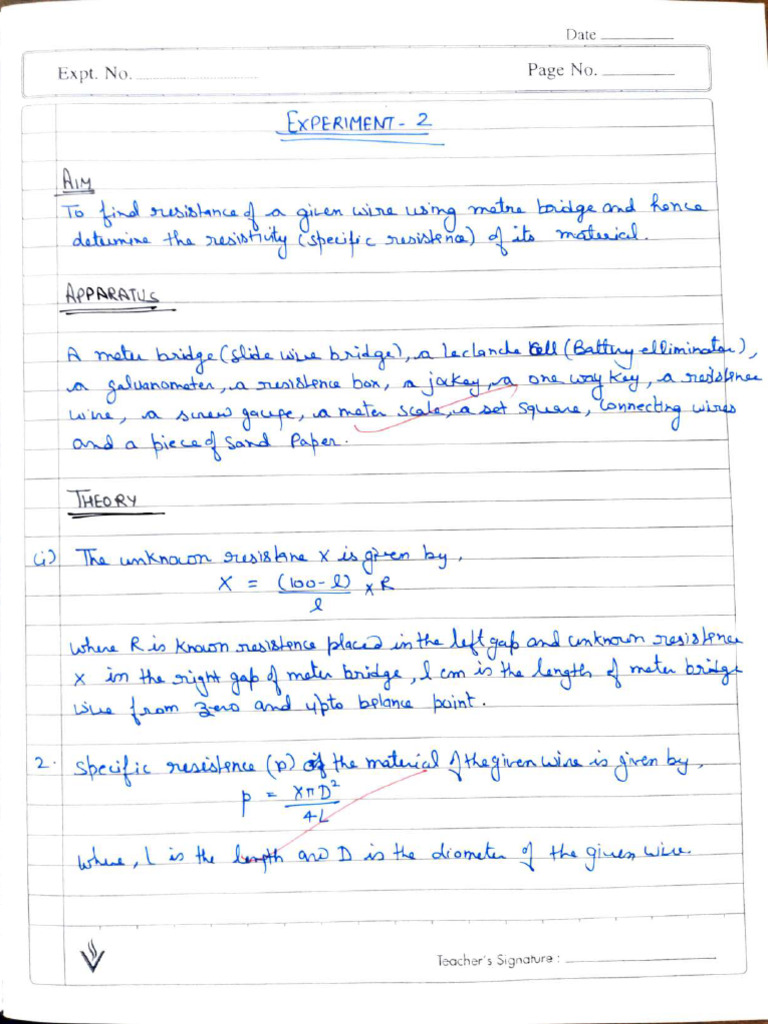 Date
Expt. No.
Page No.
EXPERIMENT - 2
AIM
To find resistance of a given wire using metre bridge and hence
determine the resistivity (specific resistence) of its material.
APPARATUS
A meter bridge (slide wire bridge), a leclanche cell (Battery elliminator),
a galvanometer, a resistence box, a jockey, a one way key, a resistence
wire, a screw gauge, a meter scale, a set square, connecting wires
and a piece of sand paper.
THEORY
(i) The unknown resistane X is given by,
X = (100 - l) / l × R
where R is known resistence placed in the left gap and unknown resistence
X in the right gap of meter bridge, l cm is the length of meter bridge
wire from zero and upto belance point.
2. Specific resistence (p) of the material of the given wire is given by,
p = XπD² / 4L
where, L is the length and D is the diometer of the given wire.
Teacher's Signature :